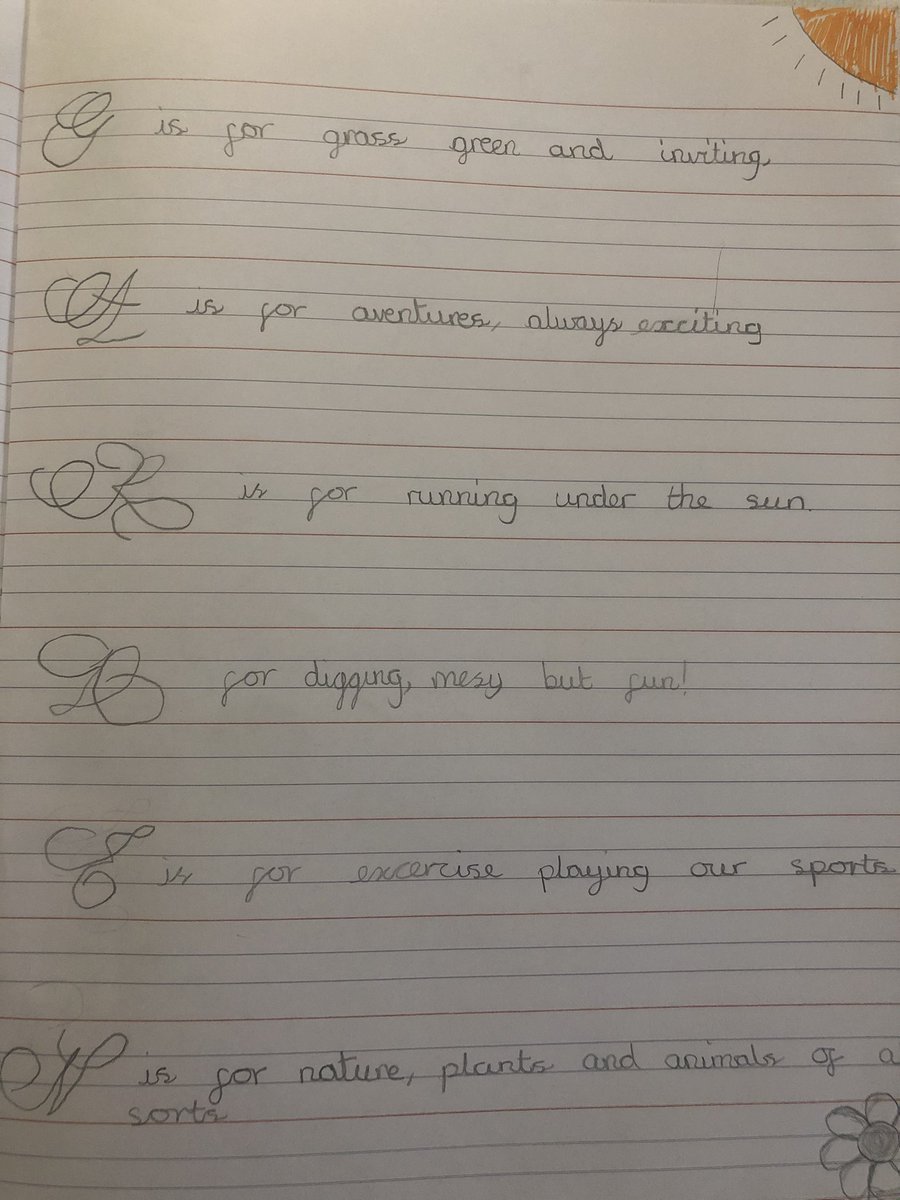 G is for grass green and inviting
A is for aventures, always exciting
R is for running under the sun.
D for digging, mesy but fun!
E is for excercise playing our sports
N is for nature, plants and animals of a
sorts